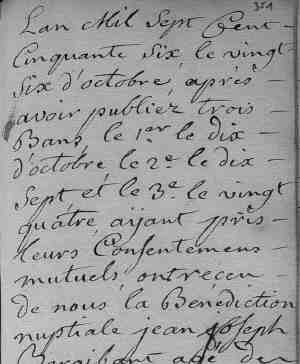 354
Lan Mil Sept Cent
Cinquante Six le vingt
Six d'octobre, après
avoir publiez trois
Bans, le 1er le dix
d'octobre le 2e le dix
Sept et le 3e le vingt
quatre, aijant pris
leurs Consentemens
mutuels ont receu
de nous la Benediction
nuptiale jean joseph
agé de